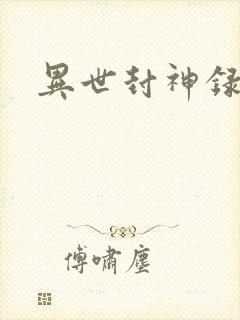 異世封神録
傅嘯塵